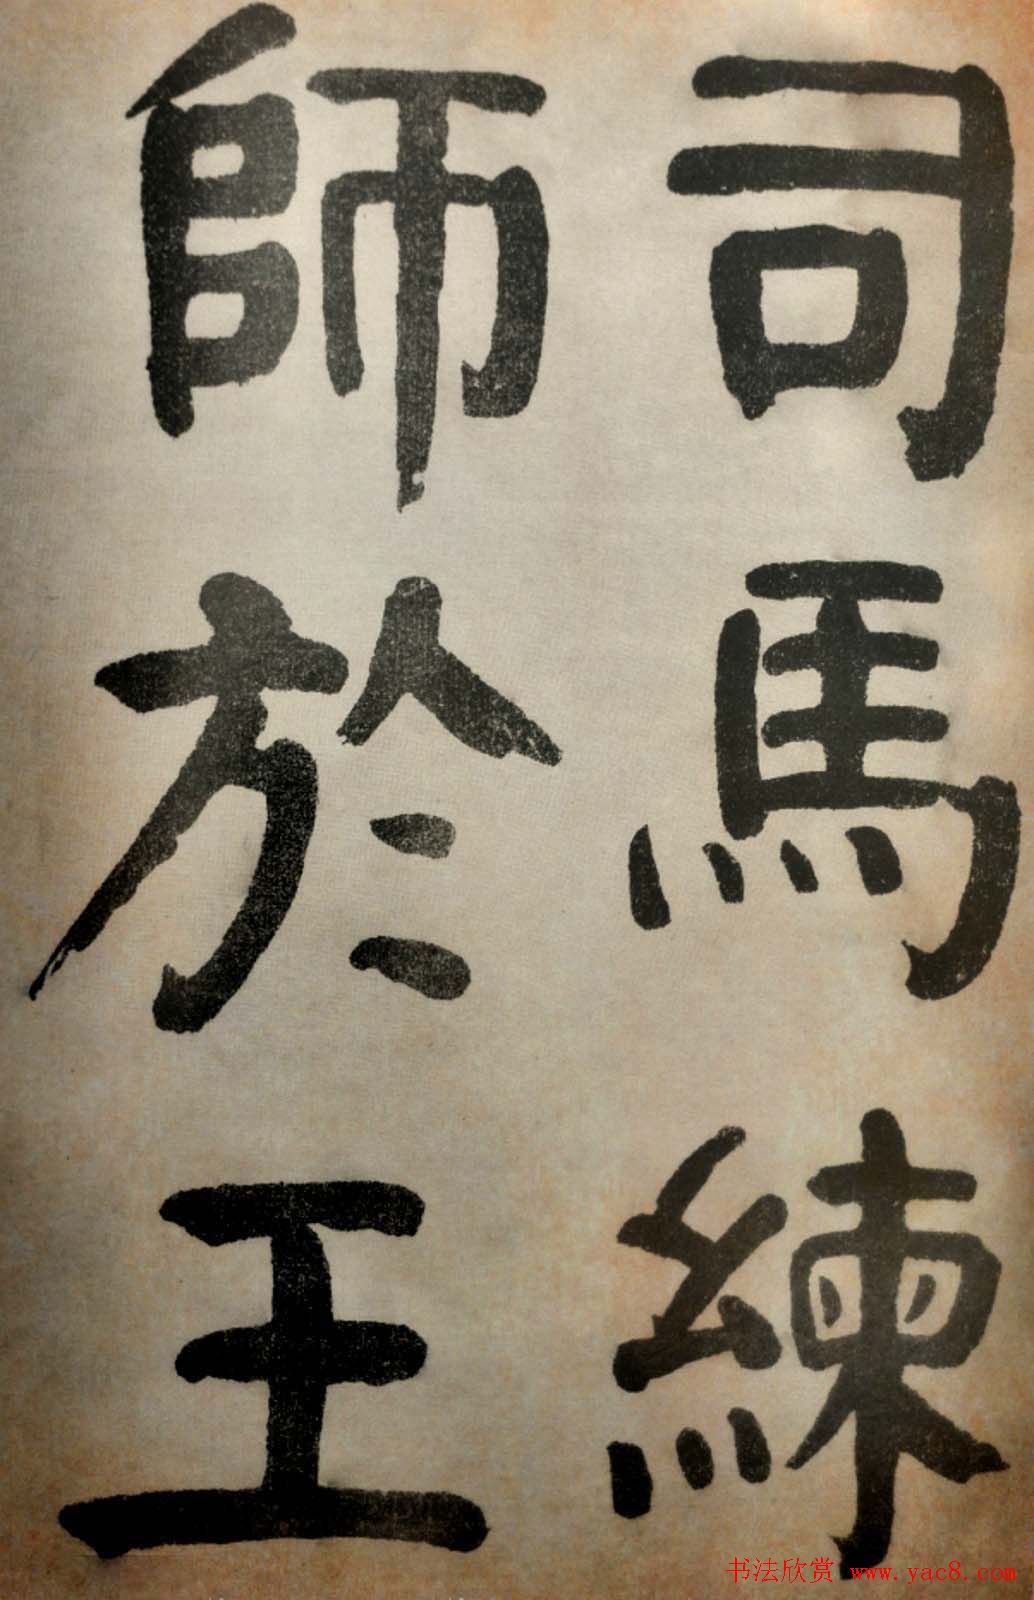 司馬練
師於王
书法欣赏 www.yac8.com